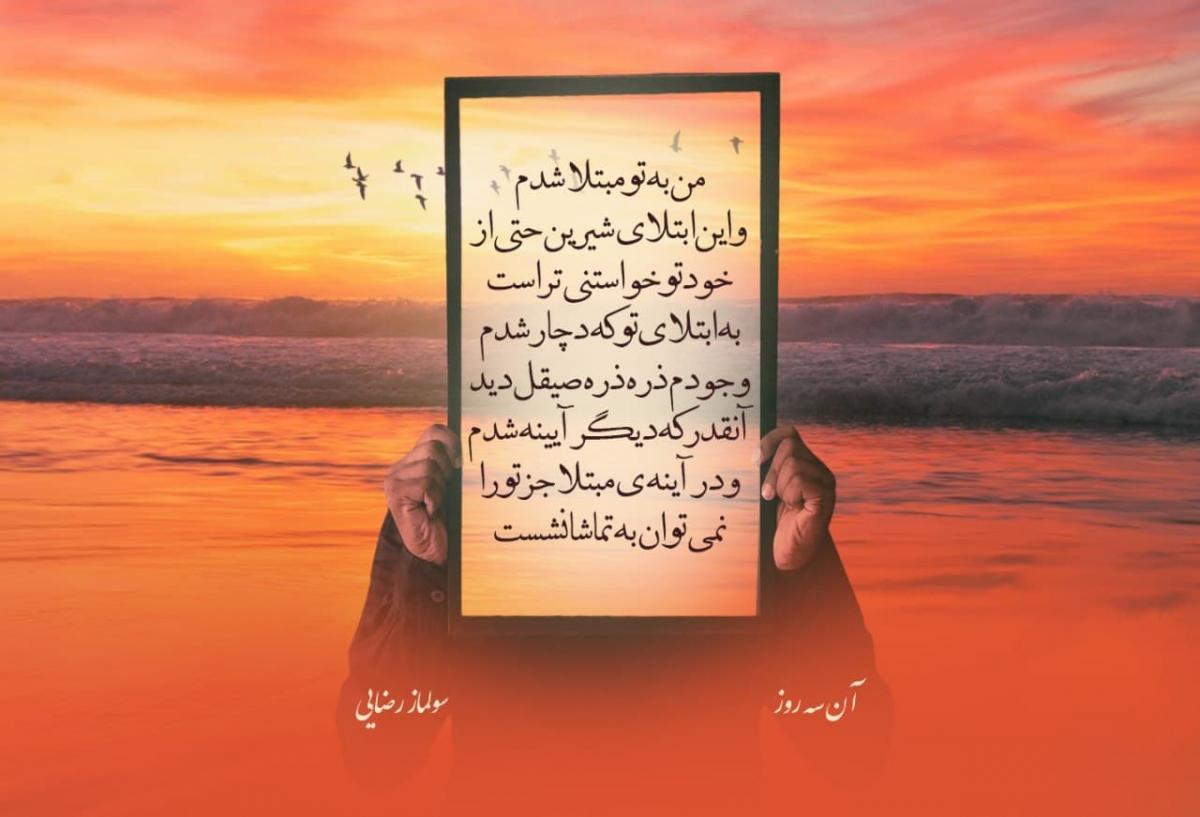 من به تو مبتلا شدم
و این ابتلای شیرین حتی از
خود تو خواستنی تر است
به ابتلای تو که دچار شدم
وجودم ذره ذره صیقل دید
آنقدر که دیگر آیینه شدم
و در آینه‌ی مبتلا جز تو را
نمی توان به تماشا نشست
آن سه روز
سولماز رضایی